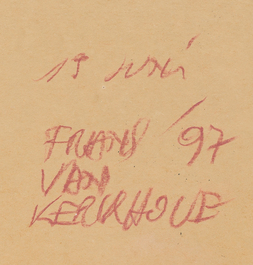 19 JUNI
FRANS '97
VAN
KERKHOVE